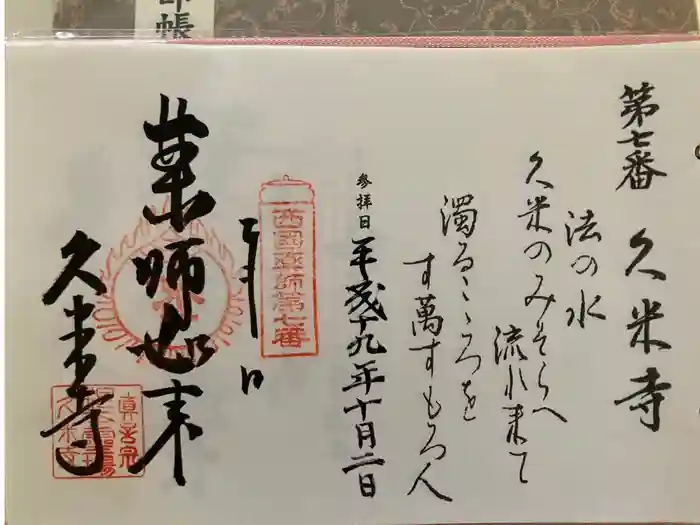 印帳
第七番 久米寺
法の水
久米のみそらへ
流れ来て
濁るこゝろを
す萬すもろ人
参拝日 平成十九年十月二日
西國薬師第七番
薬師如来
久米寺